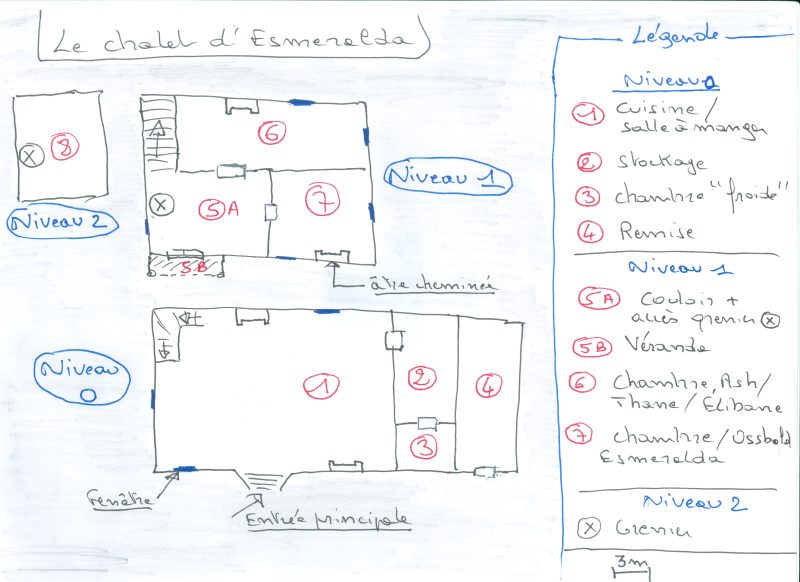 Le chalet d'Esmeralda
8
X
Niveau 2
6
X
5A
7
5B
Niveau 1
âtre cheminée
Niveau
0
1
2
3
4
Fenêtre
Entrée principale
Légende
Niveau 0
1 Cuisine /
salle à manger
2 stockage
3 chambre "froide"
4 Remise
Niveau 1
5A Couloir +
accès grenier X
5B Véranda
6 Chambre, Ash/
Thane / Elibane
7 chambre / Ossbold
Esmeralda
Niveau 2
X Grenier
3m